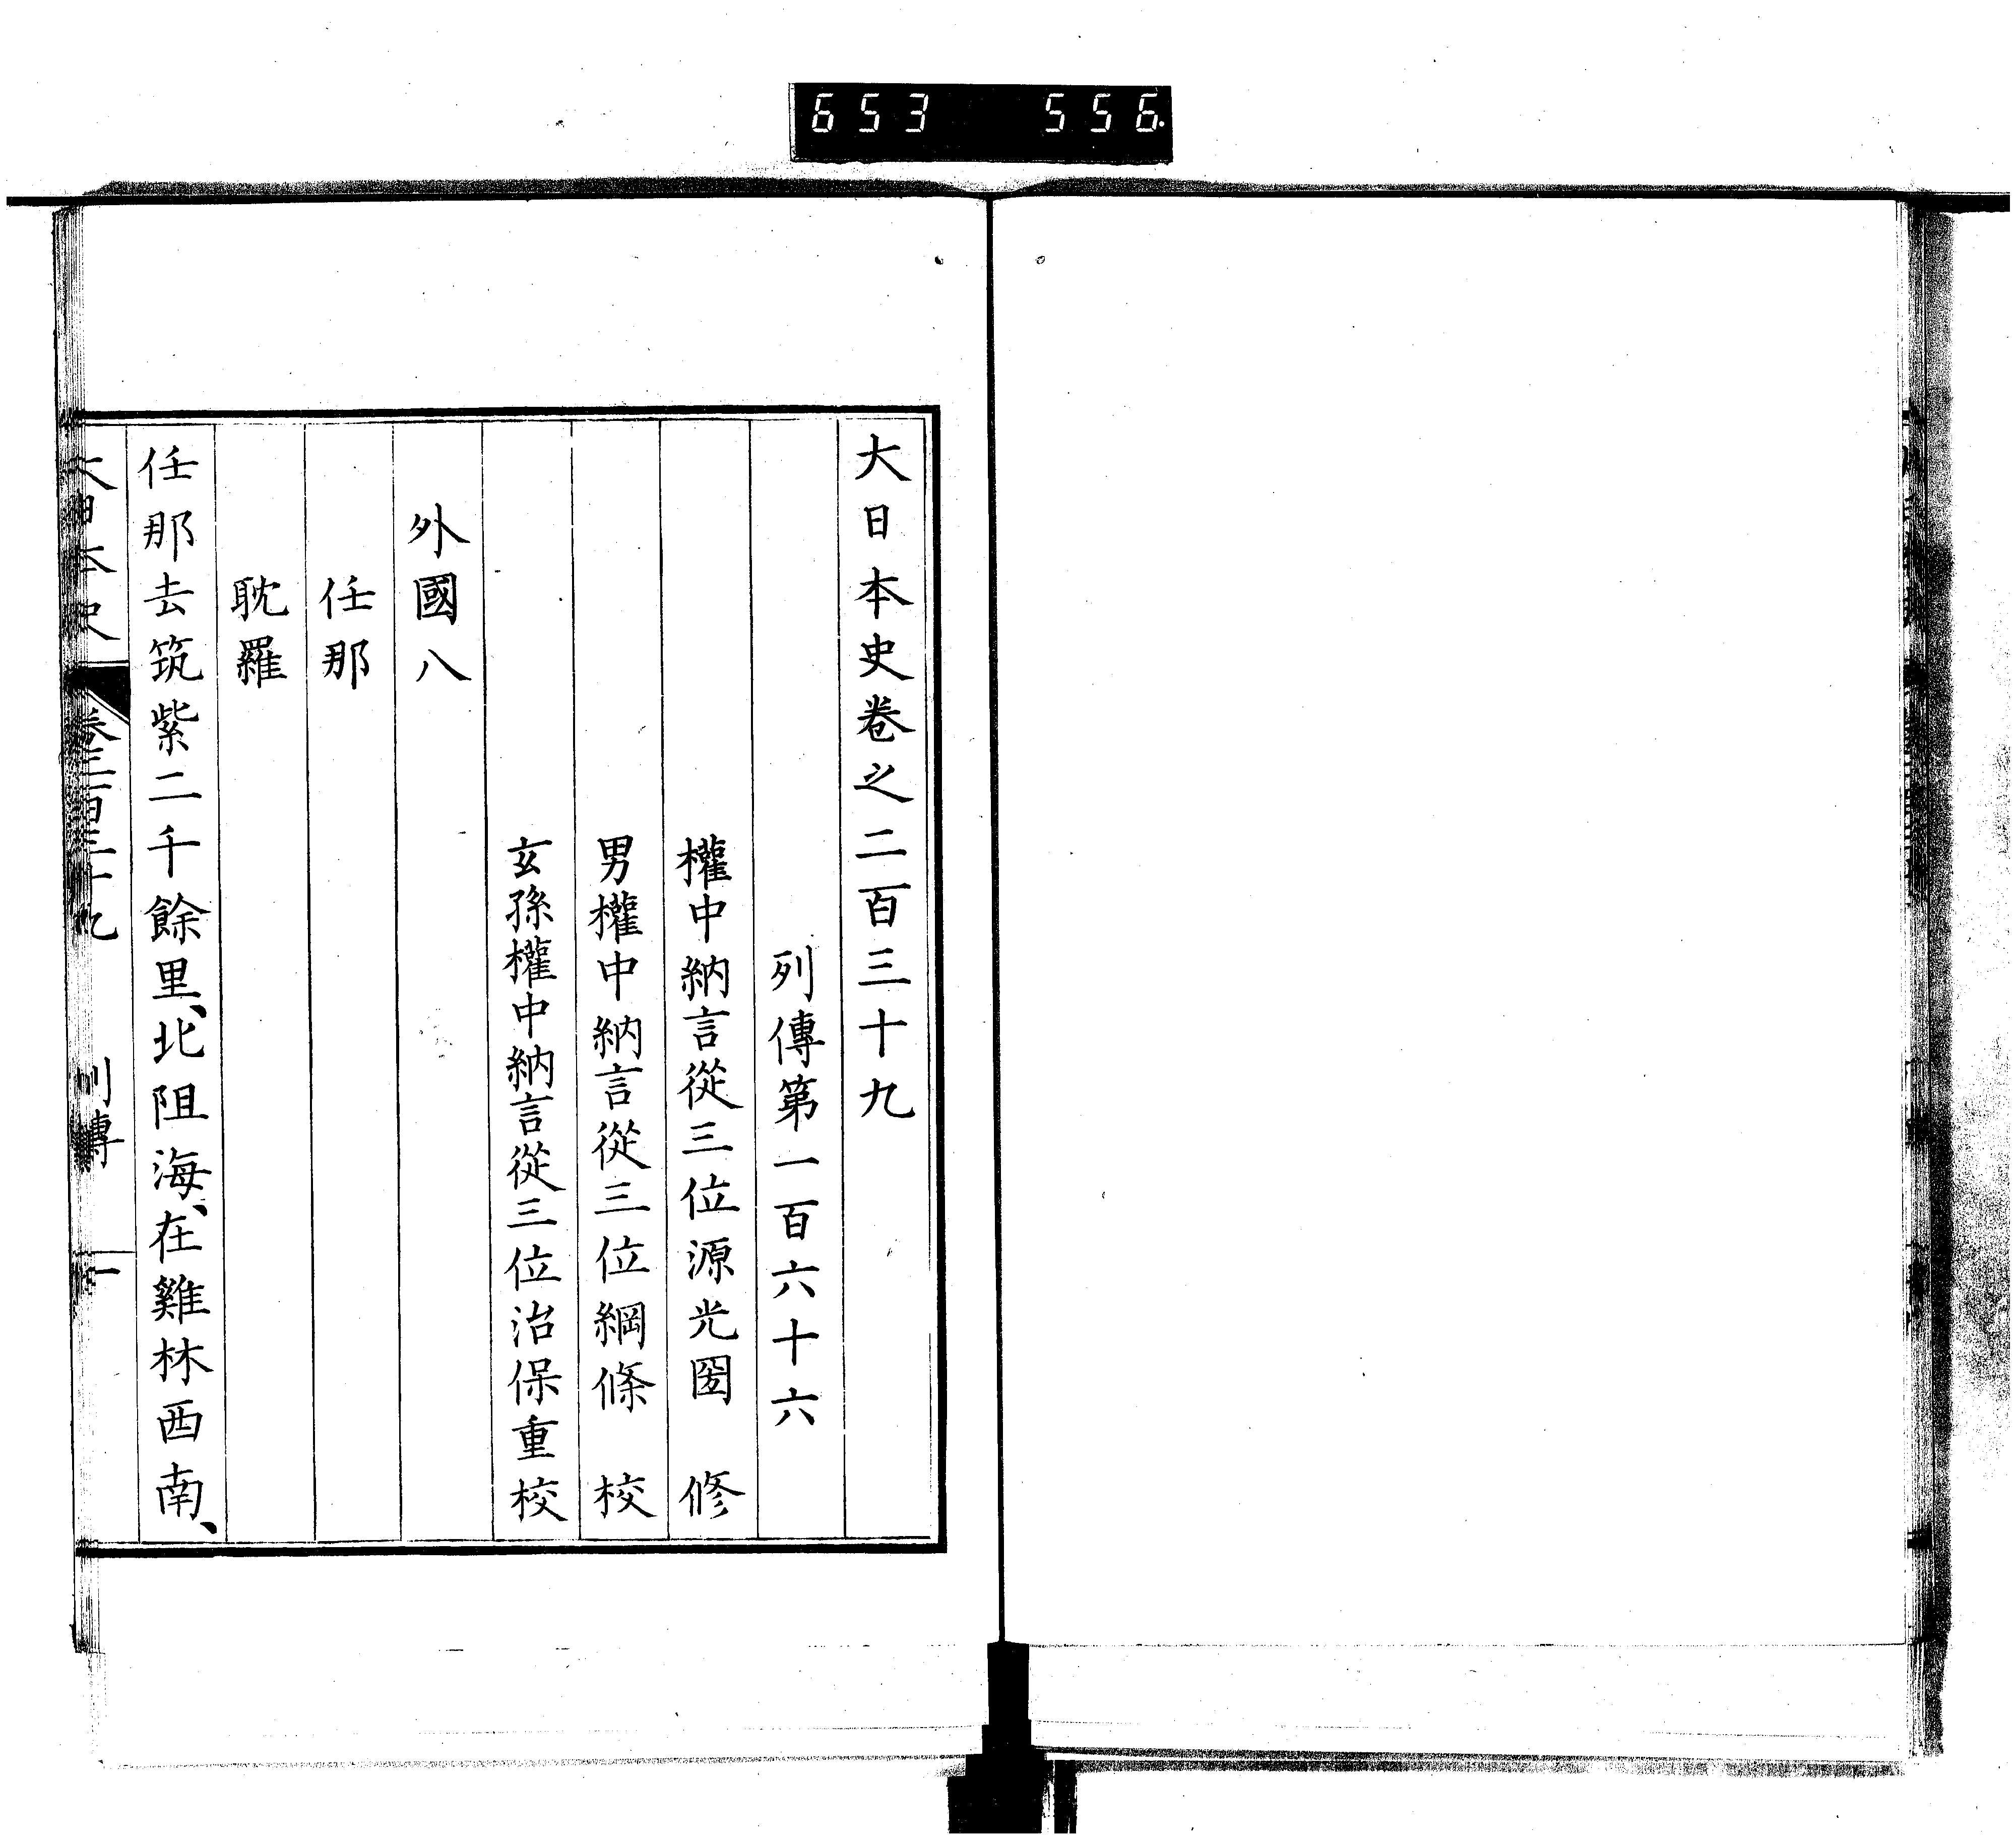 653 556
大日本史卷之二百三十九
列傳第一百六十六
權中納言從三位源光圀 修
男權中納言從三位綱條 校
玄孫權中納言從三位治保重校
外國八
任那
耽羅
任那去筑紫二千餘里、北阻海、在雞林西南、
大日本史 卷二百三十九 列傳 一